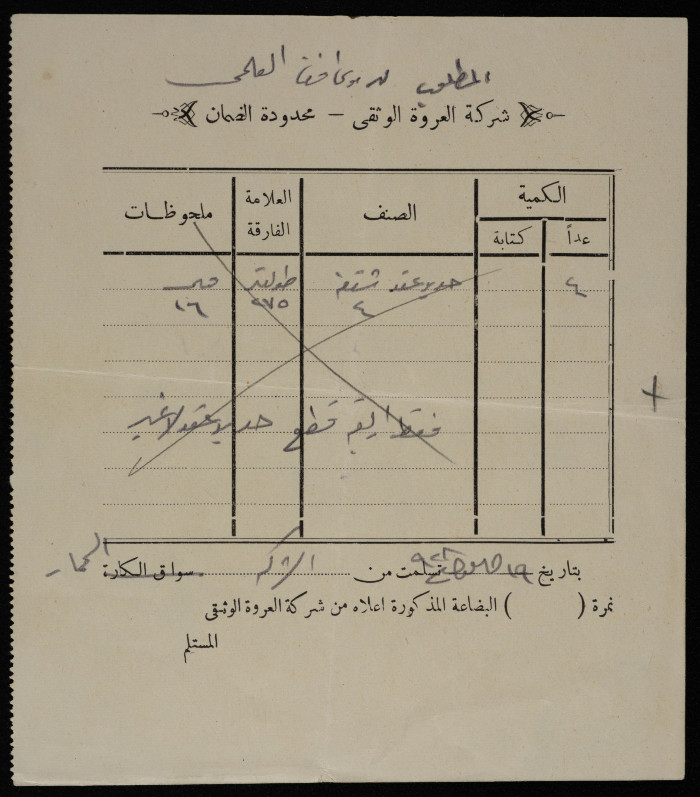 المطلوب افندي العلمي
شركة العروة الوثقى - محدودة الضمان
الكمية
عداً كتابة الصنف العلامة الفارقة ملحوظات
٤ حديد عقد شقفة ٤ طولة ٢٧٥ ١٦
فقط اربع قطع حديد عقد لا غير
بتاريخ ١٩ تسلمت من الشركة سواق الكارة الحمار
نمرة ( ) البضاعة المذكورة اعلاه من شركة العروة الوثقى
المستلم